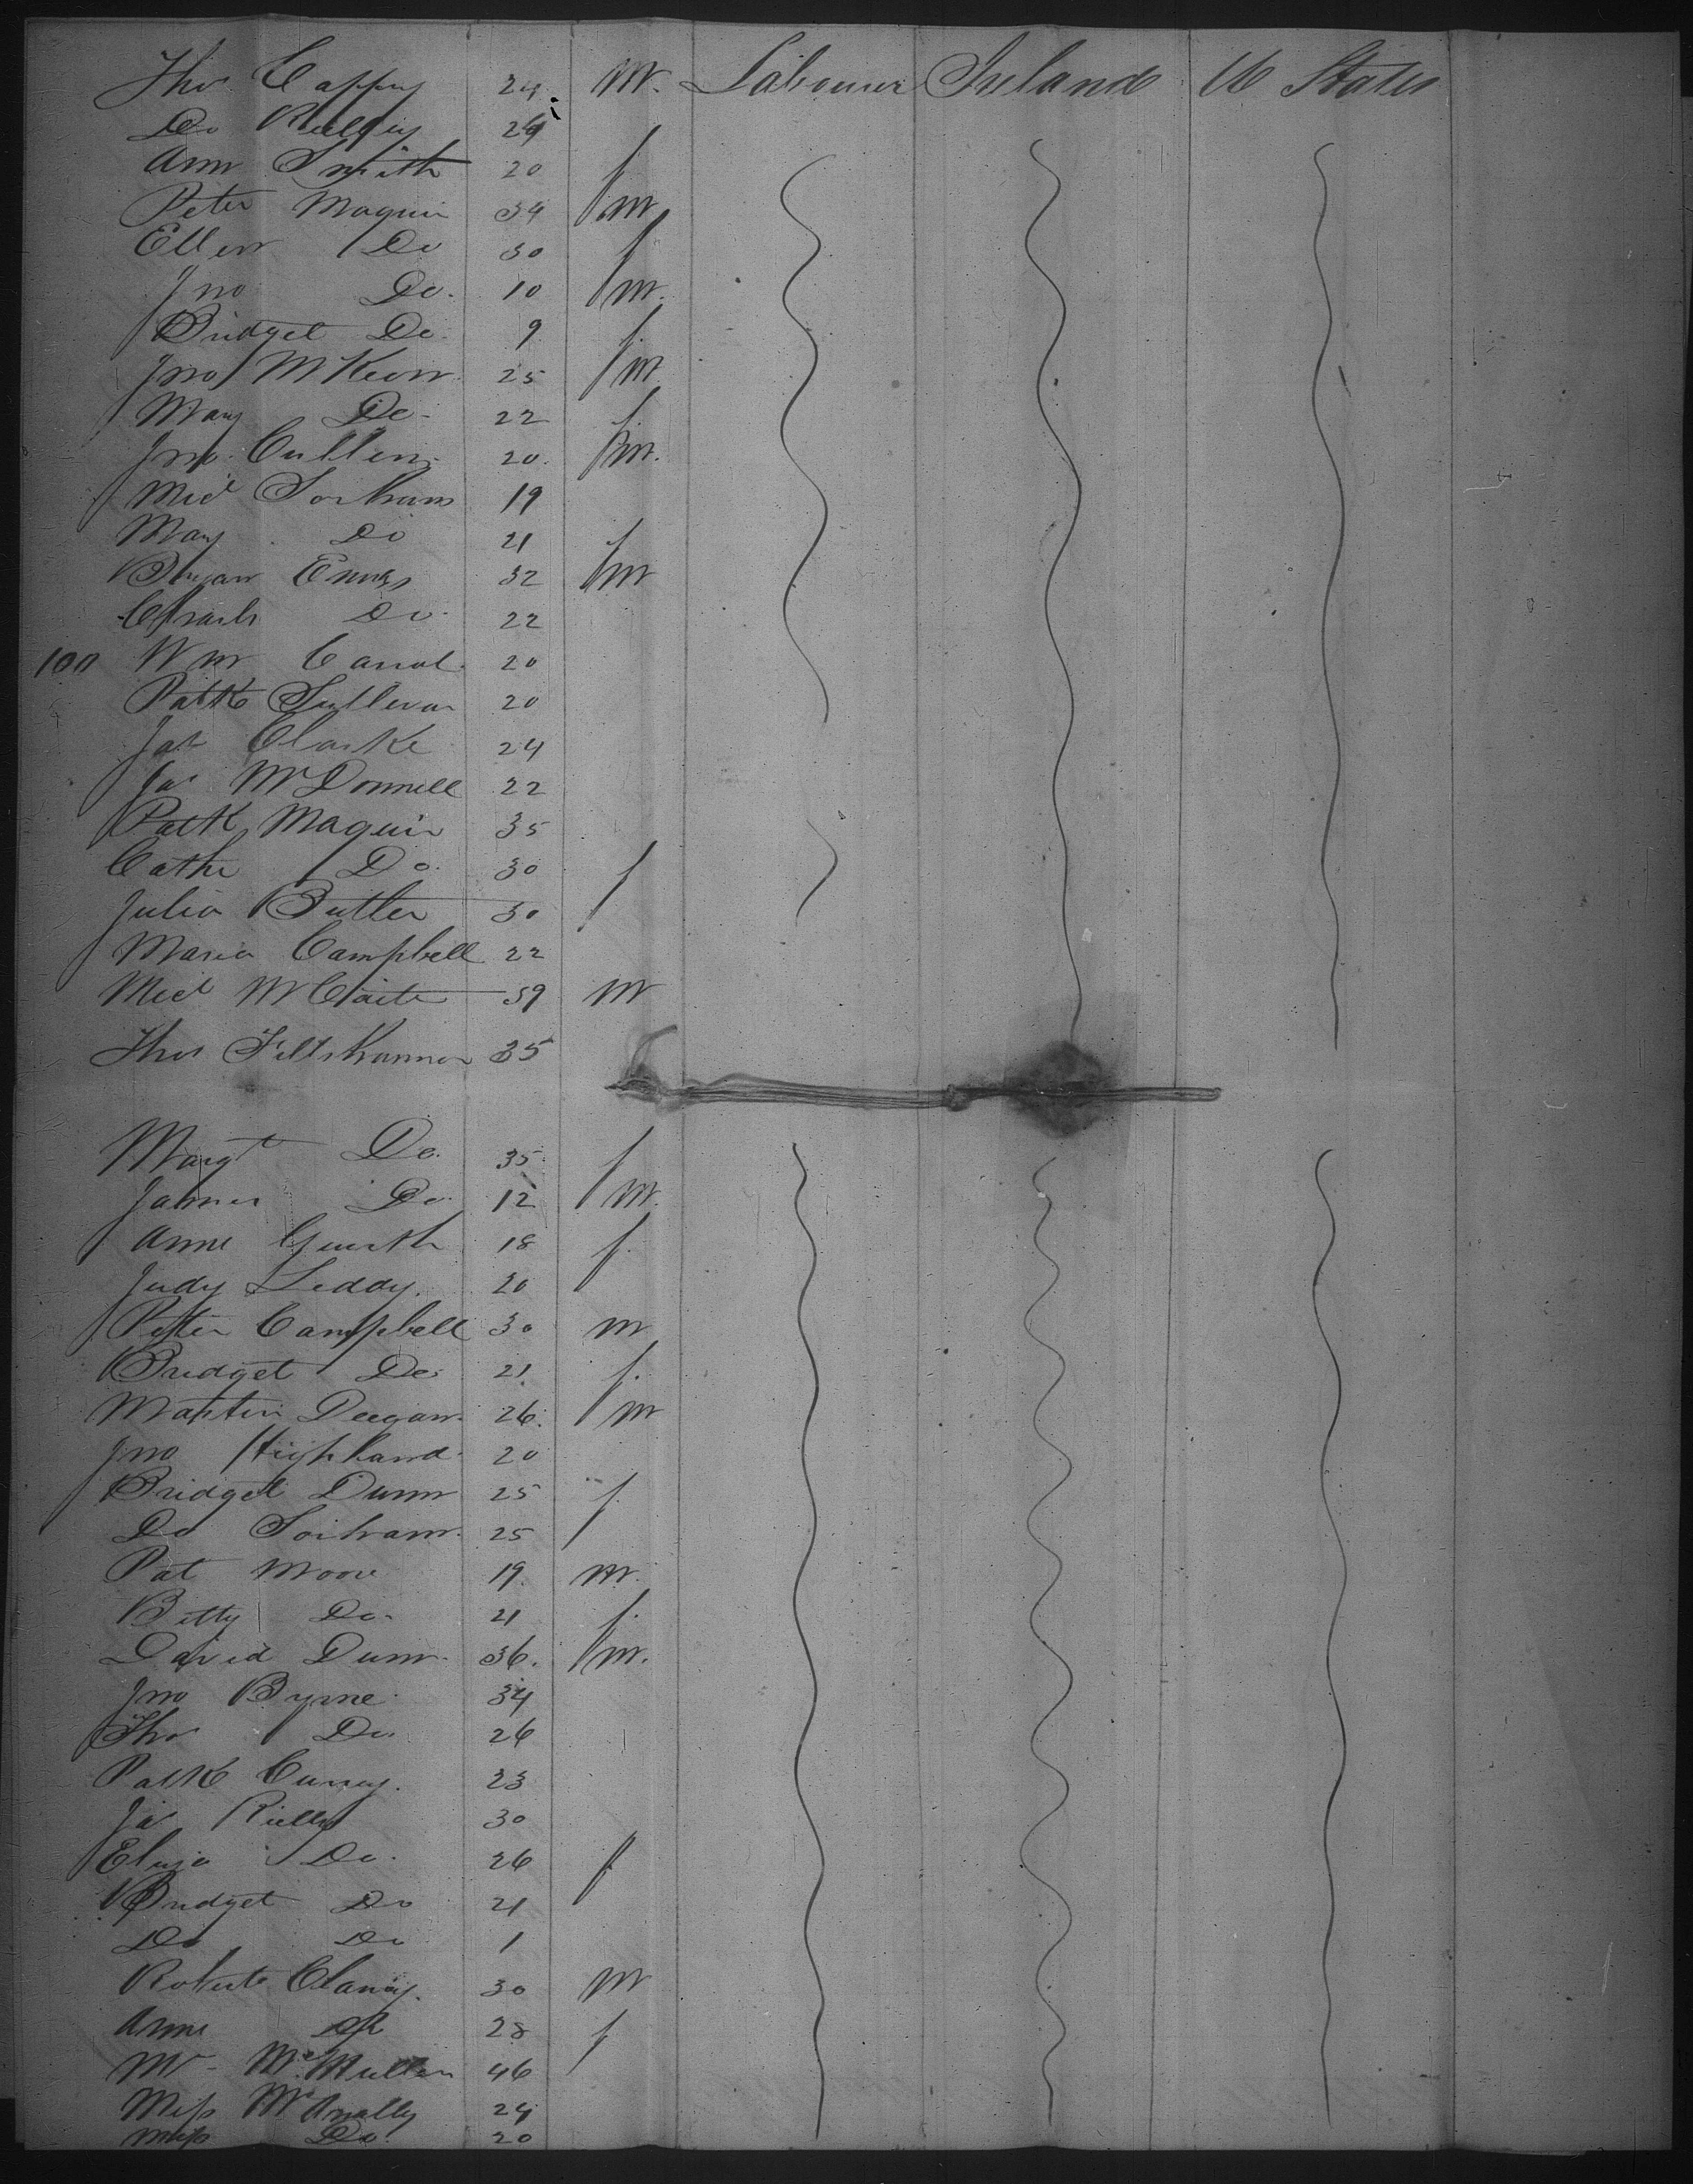 Thos Caffry 24 m. Labourer Ireland U States
Do 24
Ann Smith 20 f
Peter Maguir 34 m
Ellen Do 30 f
Jno Do. 10 m.
Bridget Do. 9 f
Jno McKeon 25 m
Mary Do- 22 f
Jno. Cullen 20. m.
Micl 19
Mary Do 21 f
Bryan 32 m
Charls Do 22
100 Wm Carrol 20
Patk Sullivan 20
Jas Clarke 24
Jas McDonnell 22
Patk Maguir 35
Cathe Do. 30 f
Julia Butler 30
Maria Campbell 22
Micl 39 m
Thos 35
Margt Do. 35 f
James Do 12 m.
Anne 18 f
Judy Leddy. 20
Peter Campbell 30 m
Bridget Do 21 f.
Martin Deegan 26. m
Jno Highland 20
Bridget Dunn 25 f
Do 25
Pat Moore 19. m.
Betty Do. 21 f.
David Dunn 36. m.
Jno Byrne 34
Thos Do. 26
Patk 23
Jas Rielly 30
Eliza Do. 26 f
Bridget Do 21
Do Do 1
Robert Clancy. 30 m
Anne Do 28 f
Mr McMullen 46
Miss McAnally 24
Miss Do. 20